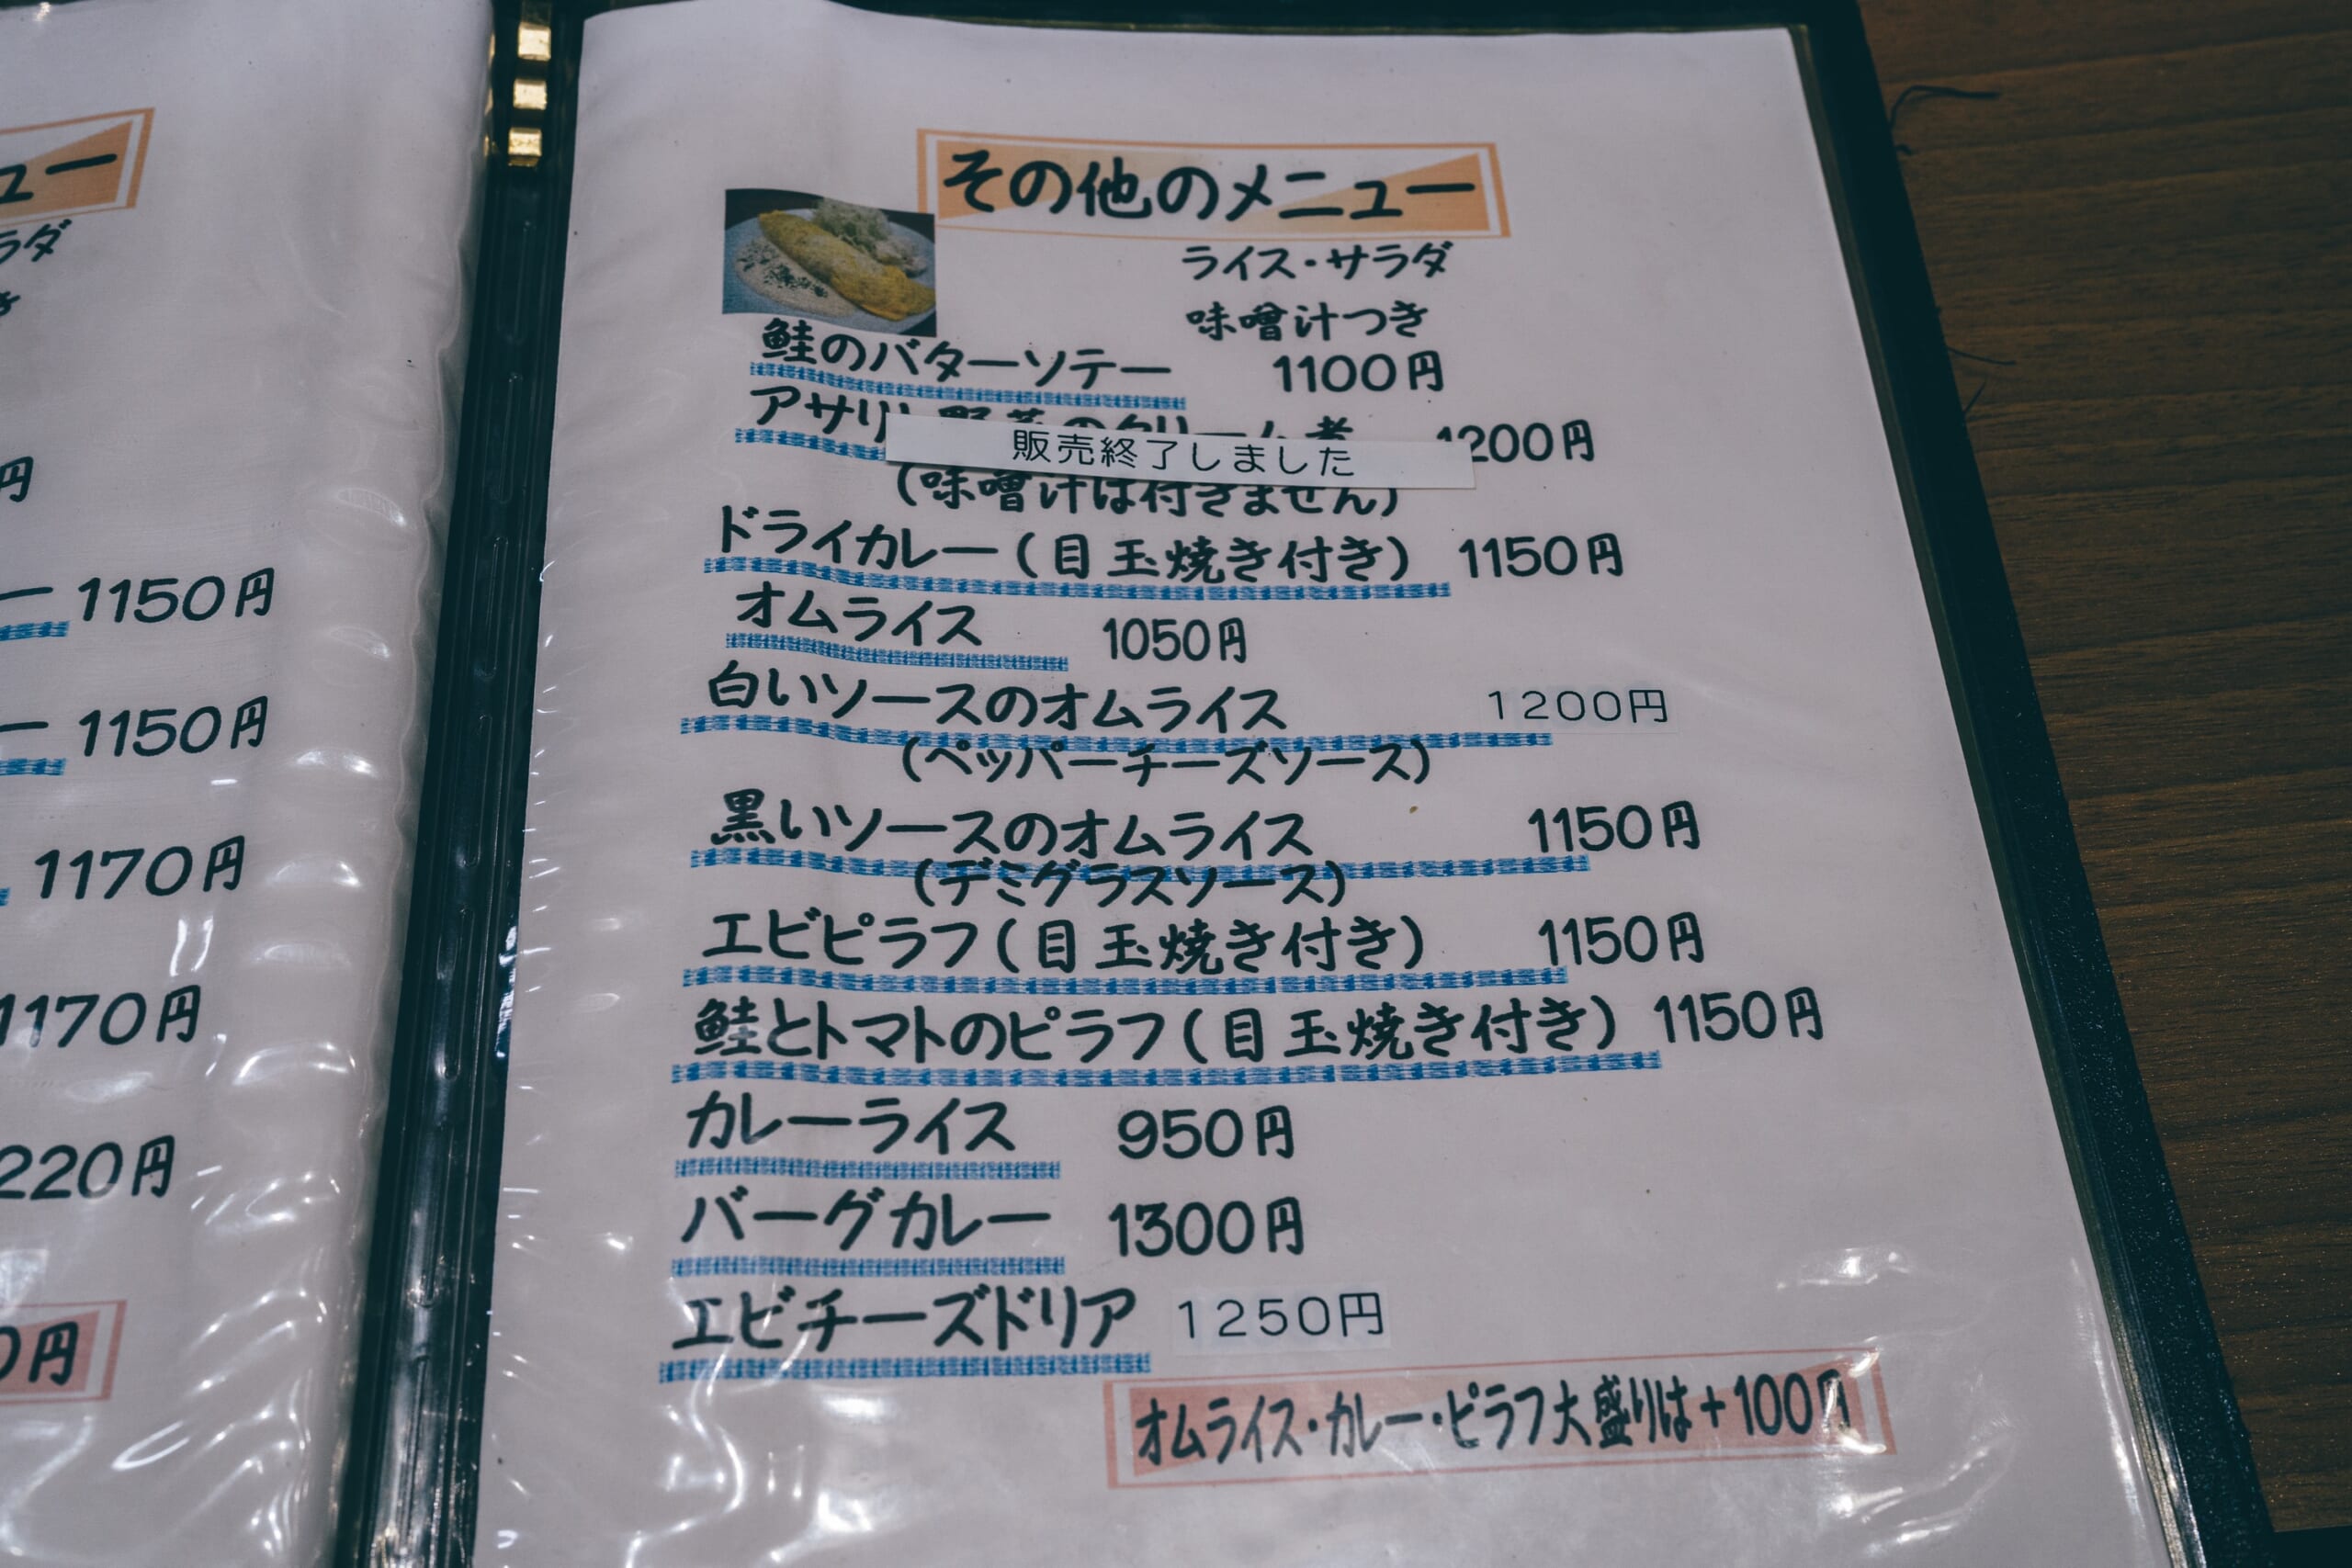 ュー
ラダ
き
円
ー 1150円
ー 1150円
1170円
1170円
220円
0円
その他のメニュー
ライス・サラダ
味噌汁つき
鮭のバターソテー 1100円
アサリと野菜のクリーム煮 1200円
販売終了しました
(味噌汁は付きません)
ドライカレー(目玉焼き付き) 1150円
オムライス 1050円
白いソースのオムライス 1200円
(ペッパーチーズソース)
黒いソースのオムライス 1150円
(デミグラスソース)
エビピラフ(目玉焼き付き) 1150円
鮭とトマトのピラフ(目玉焼き付き) 1150円
カレーライス 950円
バーグカレー 1300円
エビチーズドリア 1250円
オムライス・カレー・ピラフ大盛りは+100円